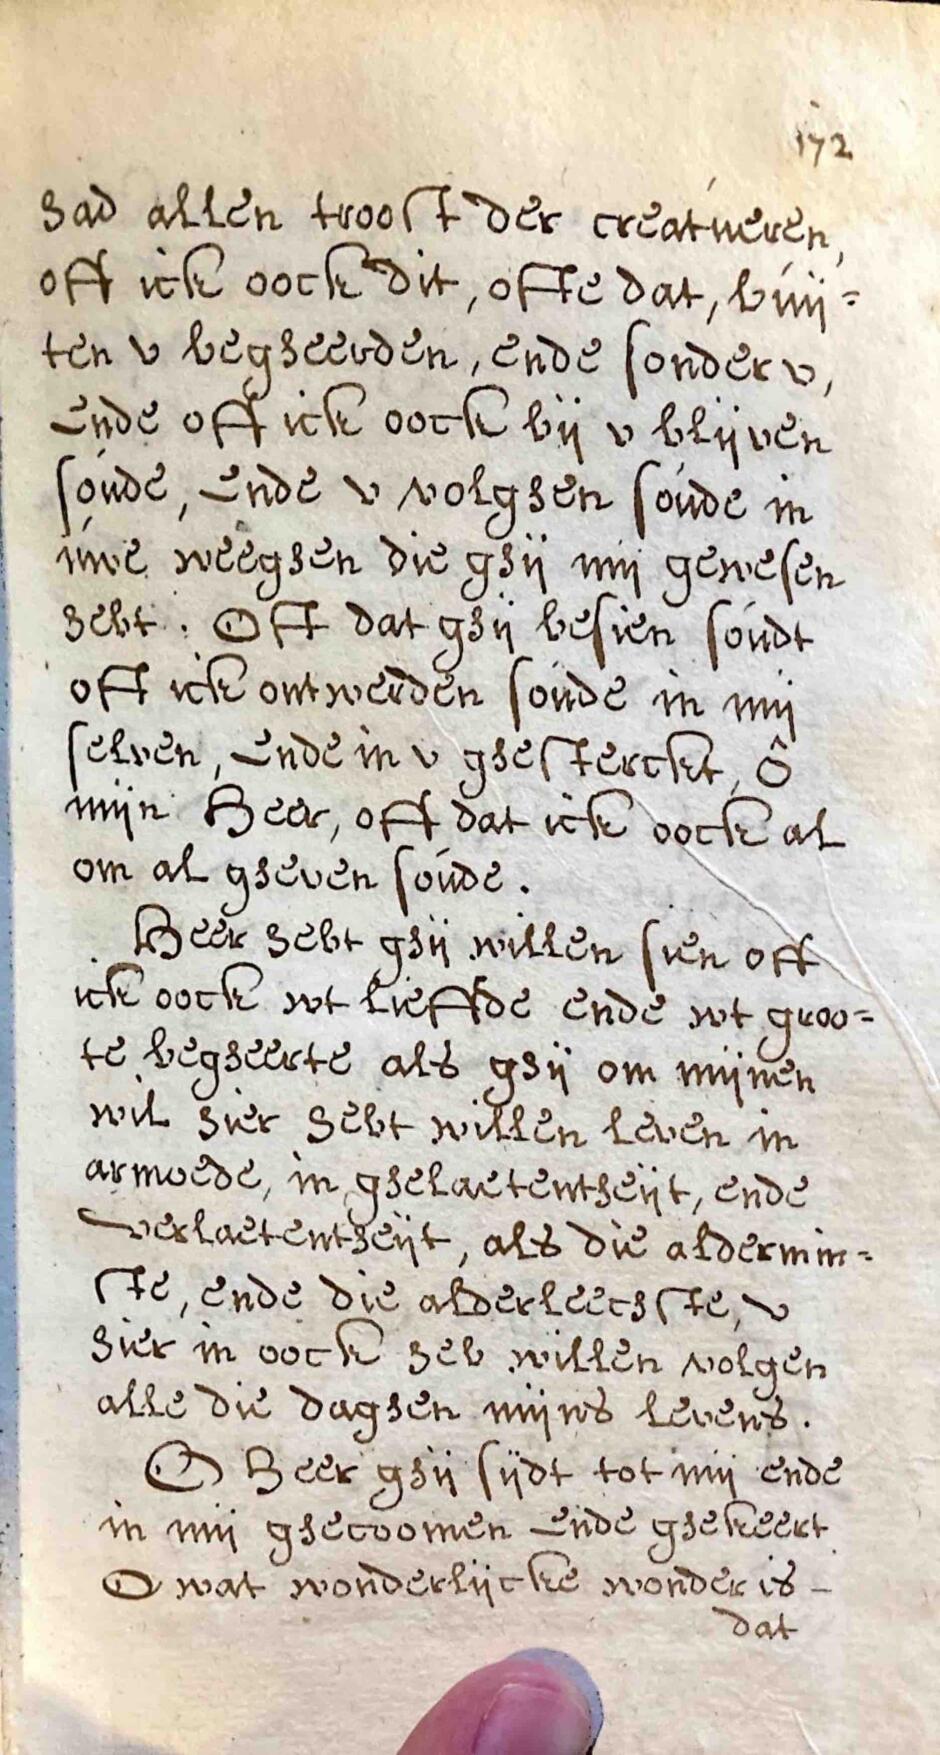 172
had allen troost der creatueren,
oft ick oock dit, ofte dat, buij=
ten v begheerden, ende sonder v,
Ende oft ick oock bij v blijven
soude, Ende v volghen soude in
uwe weeghen die ghij mij gewesen
hebt. Oft dat ghij besien soudt
oft ick ontwerden soude in mij
selven, Ende in v ghesterckt, ô
mijn Heer, oft dat ick oock al
om al gheven soude.
Heer hebt ghij willen sien oft
ick oock wt liefde ende wt groo=
te begheerte als ghij om mijnen
wil hier hebt willen leven in
armoede, in ghelaetentheijt, ende
verlaetentheijt, als die aldermin=
ste, ende die alderleechste, v
hier in oock heb willen volgen
alle die daghen mijns levens.
O Heer ghij sijdt tot mij ende
in mij ghecoomen Ende ghekeert
O wat wonderlijcke wonder is –
dat